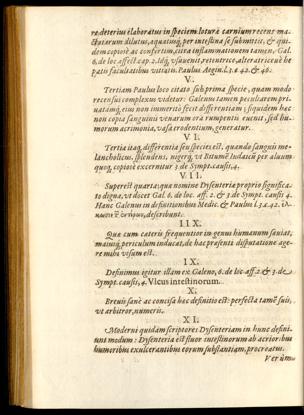 re, deterius elaboratus in speciem loturæ carnium recens ma-
ctatarum dilutus, aquaticusq́; per intestina se submittit, & qui-
dem copiosè ac confertim, citra inflammationem tamen, Gal.
6. de loc. affect. cap. 2. Idq́; vsuuenit, retentrice, alteratriceuè he
patis facultatibus vitiatis. Paulus Aegin. l. 3. c. 42. & 46.
V.
Tertiam Paulus loco citato sub prima specie, quam modo
recensui complexus videtur: Galenus tamen peculiarem pri-
uatamq́; eius non immeritò fecit differentiam; siquidem hæc
non copia sanguinis venarum ora rumpentis euenit, sed hu-
morum acrimonia, vasa erodentium, generatur.
VI.
Tertia itaq; differentia seu species est, quando sanguis me-
lancholicus, splendens, nigerq́; vt Bitumen Iudaicum per aluum
quoq; copiosè excernitur 3. de Sympt. caussis, 4.
VII.
Superest quarta: quæ nomine Dysenteriæ proprio significa-
to digna, vt docet Gal. 6. de loc. aff. 2. & 3. de Sympt. caussis 4.
Hanc Galenus in definitionibus Medic. & Paulus l. 3. c. 42.
describunt.
IIX.
Quæ cum cæteris frequentior in genus humanum sæuiat,
maiusq́; periculum inducat, de hac præsenti disputatione age-
re mihi visum est.
IX.
Definimus igitur illam ex Galeno, 6. de loc. aff. 2. & 3. de
Sympt. caussis, 4. Vlcus intestinorum.
X.
Breuis sanè ac concisa hæc definitio est: perfecta tamē suis,
vt arbitror, numeris.
XI.
Moderni quidam scriptores Dysenteriam in hunc definiunt
modum: Dysenteria est fluor intestinorum ab acrioribus
humoribus exulcerantibus eorum substantiam, procreatus.
Verùm